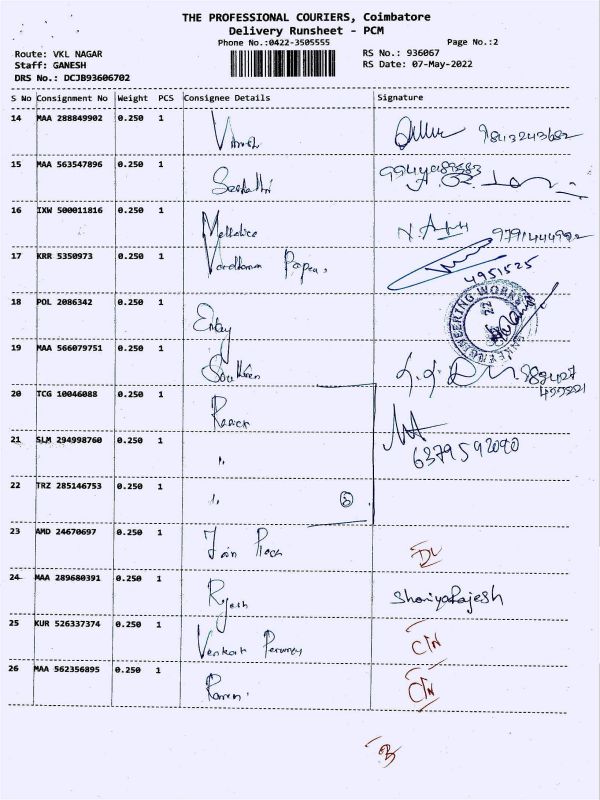 THE PROFESSIONAL COURIERS, Coimbatore
Delivery Runsheet - PCM
Phone No.:0422-3505555 Page No.:2
Route: VKL NAGAR RS No.: 936067
Staff: GANESH RS Date: 07-May-2022
DRS No.: DCJB93606702
S No Consignment No Weight PCS Consignee Details Signature
14 MAA 288849902 0.250 1 9843243682
15 MAA 563547896 0.250 1
16 IXW 500011816 0.250 1 9791444992
17 KRR 5350973 0.250 1 Vardhaman Papers
4951525
18 POL 2086342 0.250 1 ENGINEERING WORKS
19 MAA 566079751 0.250 1 Southren
20 TCG 10046088 0.250 1
21 SLM 294998760 0.250 1 " 6379592090
22 TRZ 285146753 0.250 1 " 3
23 AMD 24670697 0.250 1 Jain DL
24 MAA 289680391 0.250 1 Rajesh ShoniyaRajesh
25 KUR 526337374 0.250 1 Venkat Perumay CIN
26 MAA 562356895 0.250 1 Raman. CIN